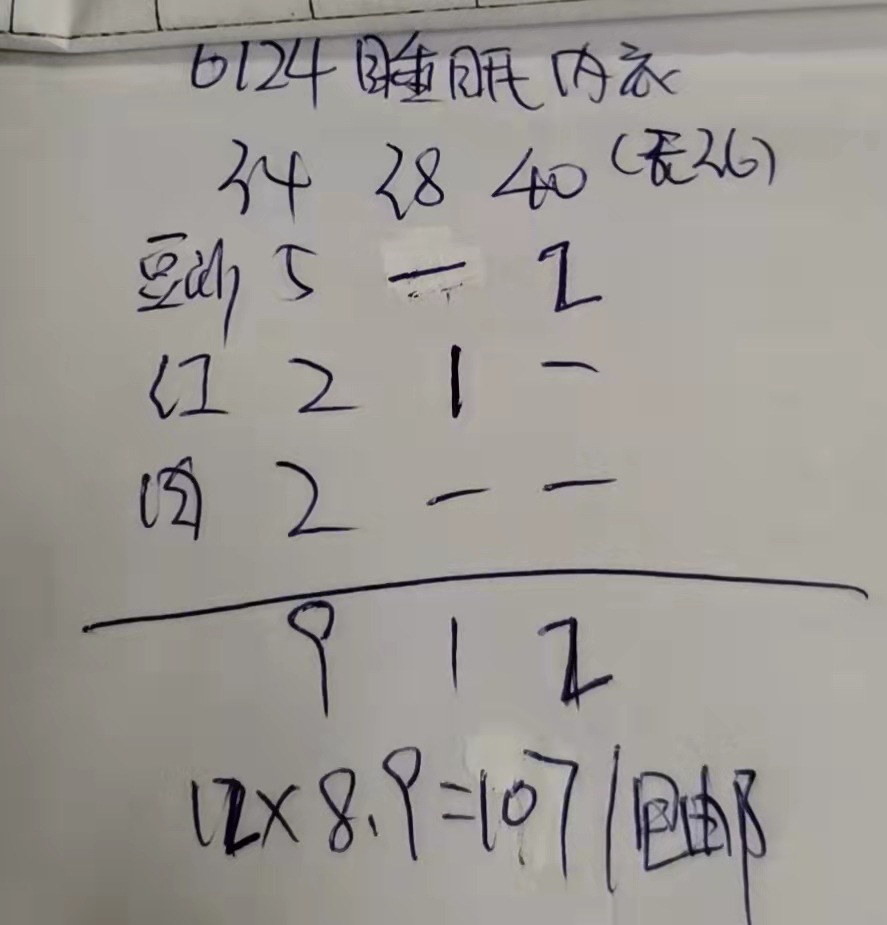 6124睡眠内衣
34 38 40 (无36)
豆沙 5 一 2
红 2 1 一
2 一 一
9 1 2
12×8.9=107/包邮